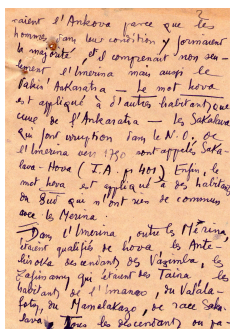 raient l'Ankova parce que les
hommes dans leur condition y formaient
la majorité, et il comprenait non seu-
lement l'Imerina mais aussi le
Vakin' Ankaratra — Le mot hova
est appliqué à d'autres habitants que
ceux de l'Ankaratra — les Sakalava
qui font irruption dans le N.O. de
l'Imerina vers 1750 sont appelés Saka-
lava-Hova (T.A. p 401) Enfin, le
mot hova est appliqué à des habitants
du Sud qui n'ont rien de commun
avec les Merina.
Dans l'Imerina, outre les Merina,
étaient qualifiés de hova les Ante-
hiroka descendants des Vazimba, les
Zafimamy qui étaient des Taina les
habitants de l'Imanga, du Valala-
fotsy, du Mamolakazo, de race Saka-
lava. Tous les descendants ou pa-